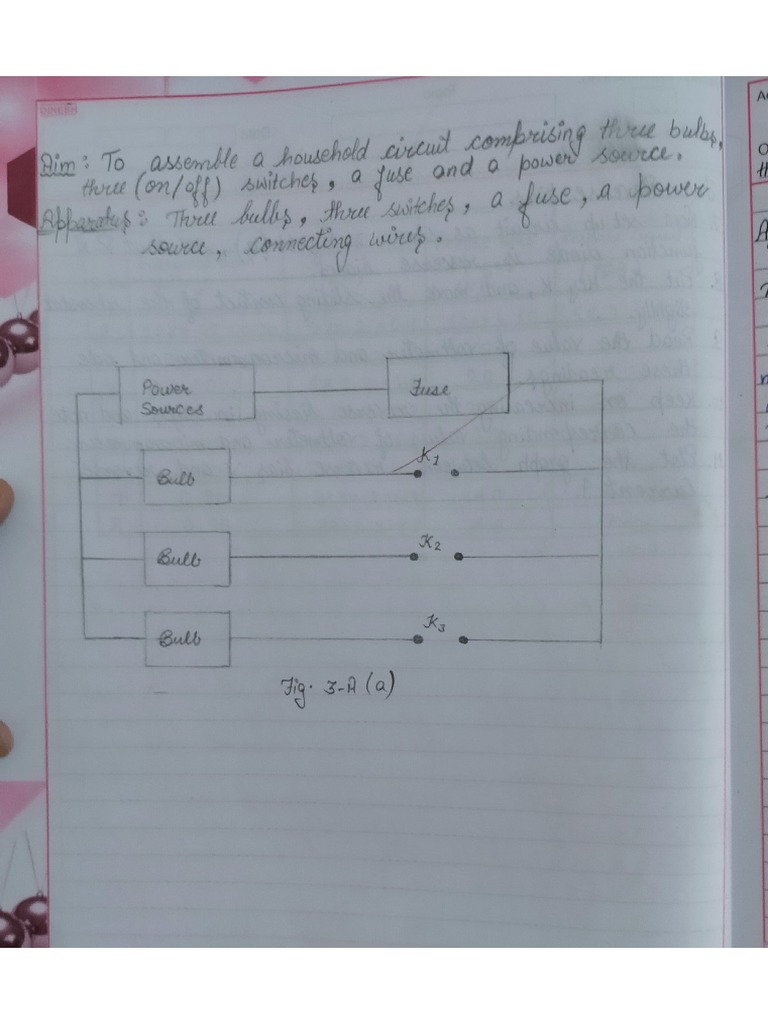 Aim: To assemble a household circuit comprising three bulbs,
three (on/off) switches, a fuse and a power source.
Apparatus: Three bulbs, three switches, a fuse, a power
source, connecting wires.
Power
Sources
Fuse
Bulb
K1
Bulb
K2
Bulb
K3
Fig. 3-A (a)